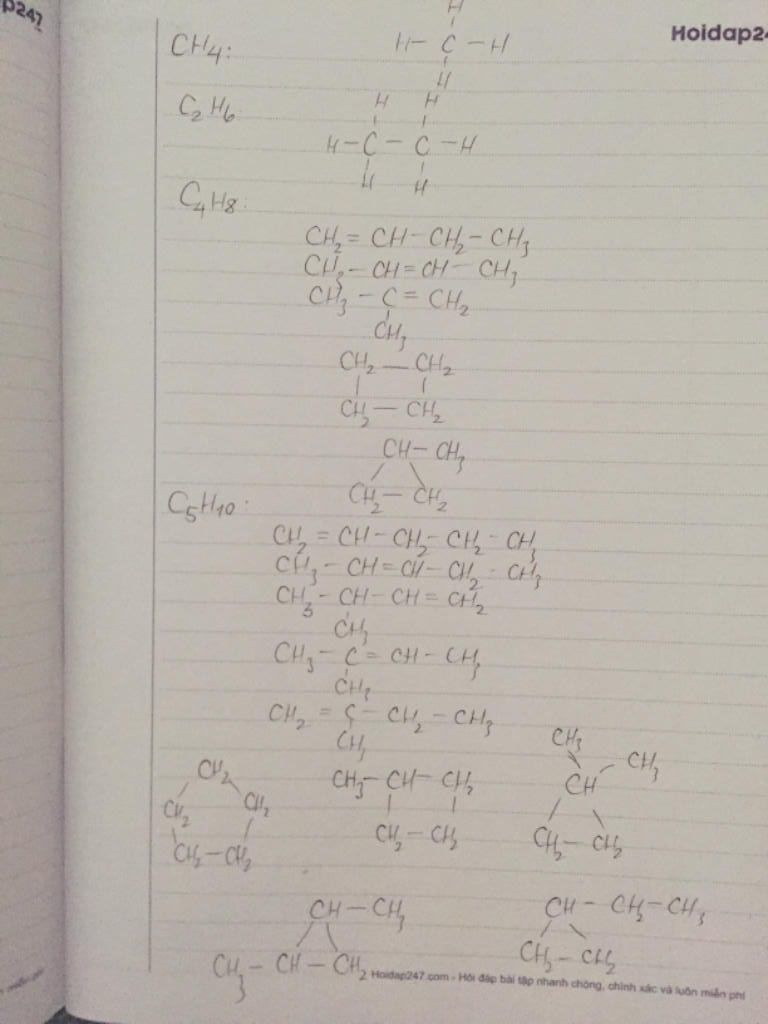 p247
Hoidap24
CH4:
H
H - C - H
H
C2H6
H H
H - C - C - H
H H
C4H8:
CH2 = CH - CH2 - CH3
CH3 - CH = CH - CH3
CH3 - C = CH2
CH3
CH2 — CH2
CH2 — CH2
CH - CH3
CH2 — CH2
C5H10:
CH2 = CH - CH2 - CH2 - CH3
CH3 - CH = CH - CH2 - CH3
CH3 - CH - CH = CH2
CH3
CH3 - C = CH - CH3
CH3
CH2 = C - CH2 - CH3
CH3
CH2
CH2 CH2
CH2 - CH2
CH3 - CH - CH2
CH2 - CH2
CH3 CH3
CH
CH2 - CH2
CH - CH3
CH3 - CH - CH2
CH - CH2 - CH3
CH2 - CH2
Hoidap247.com - Hỏi đáp bài tập nhanh chóng, chính xác và luôn miễn phí